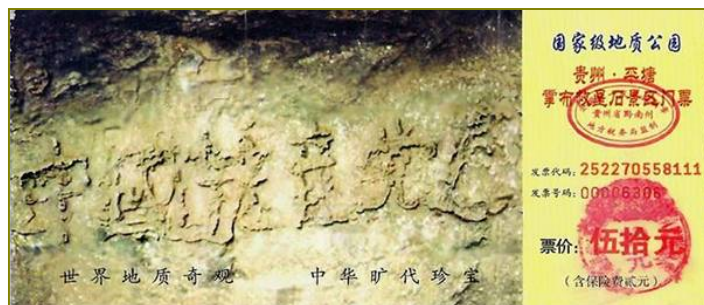 中國共產党亡
世界地质奇观 中华旷代珍宝
国家级地质公园
贵州·平塘
掌布救星石景区门票
贵州省黔南州
地方税务局监制
发票代码: 252270558111
发票号码: 00006306
票价: 伍拾元
(含保险费贰元)